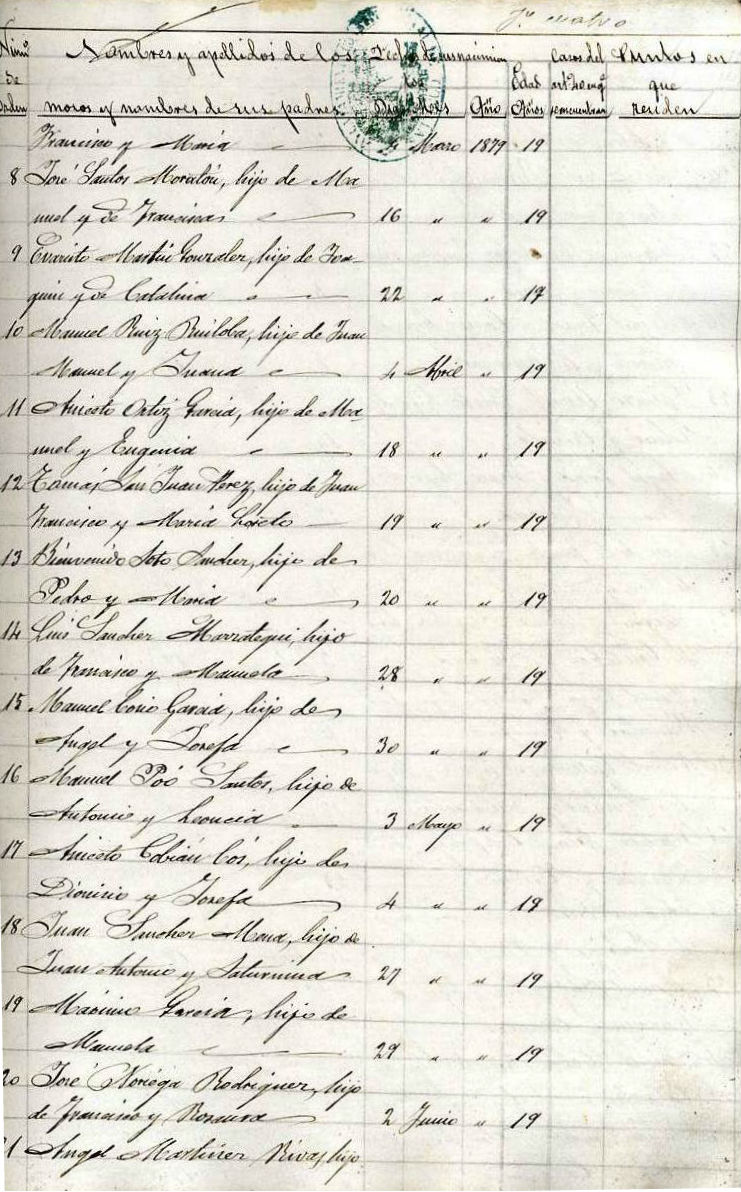 Núm.º de orden Nombres y apellidos de los mozos y nombres de sus padres Fecha de su nacimiento Días Mes Año Edad Años Casos del art.º 40 en q.e se encuentran Puntos en que residen
Francisco y María 4 Marzo 1879 19
8 José Santos Moralón, hijo de Ma-
nuel y de Francisca 16 " " 19
9 Evaristo Martín Gonzalez, hijo de Joa-
quin y de Catalina 22 " " 19
10 Manuel Ruiz Ruiloba, hijo de Juan
Manuel y Juana 4 Abril " 19
11 Aniceto Ortiz García, hijo de Ma-
nuel y Eugenia 18 " " 19
12 Tomás San Juan Perez, hijo de Juan
Francisco y María Loreto 19 " " 19
13 Bienvenido Soto Sanchez, hijo de
Pedro y María 20 " " 19
14 Luis Sanchez Marrategui, hijo
de Francisco y Manuela 28 " " 19
15 Manuel Cosio García, hijo de
Angel y Josefa 30 " " 19
16 Manuel Poó Santos, hijo de
Antonio y Leoncia 3 Mayo " 19
17 Aniceto Cobián Cós, hijo de
Dionisio y Josefa 4 " " 19
18 Juan Sanchez Mena, hijo de
Juan Antonio y Saturnina 27 " " 19
19 Máximo García, hijo de
Manuela 29 " " 19
20 José Noriega Rodriguez, hijo
de Francisco y Rosaura 2 Junio " 19
21 Angel Martinez Rivas, hijo